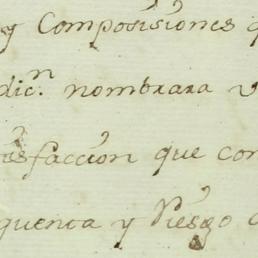 y Composiciones q
dicn. nombrara v
tisfaccion que con
quenta y Riesgo d